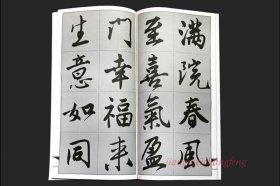 满院春風
至喜氣盈
門幸福来
生意如同